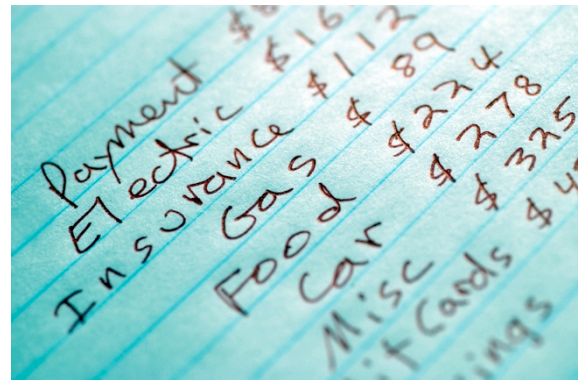 Payment $
Electric $16
Insurance $112
Gas $89
Food $224
Car $278
Misc $325
it Cards $4
ings